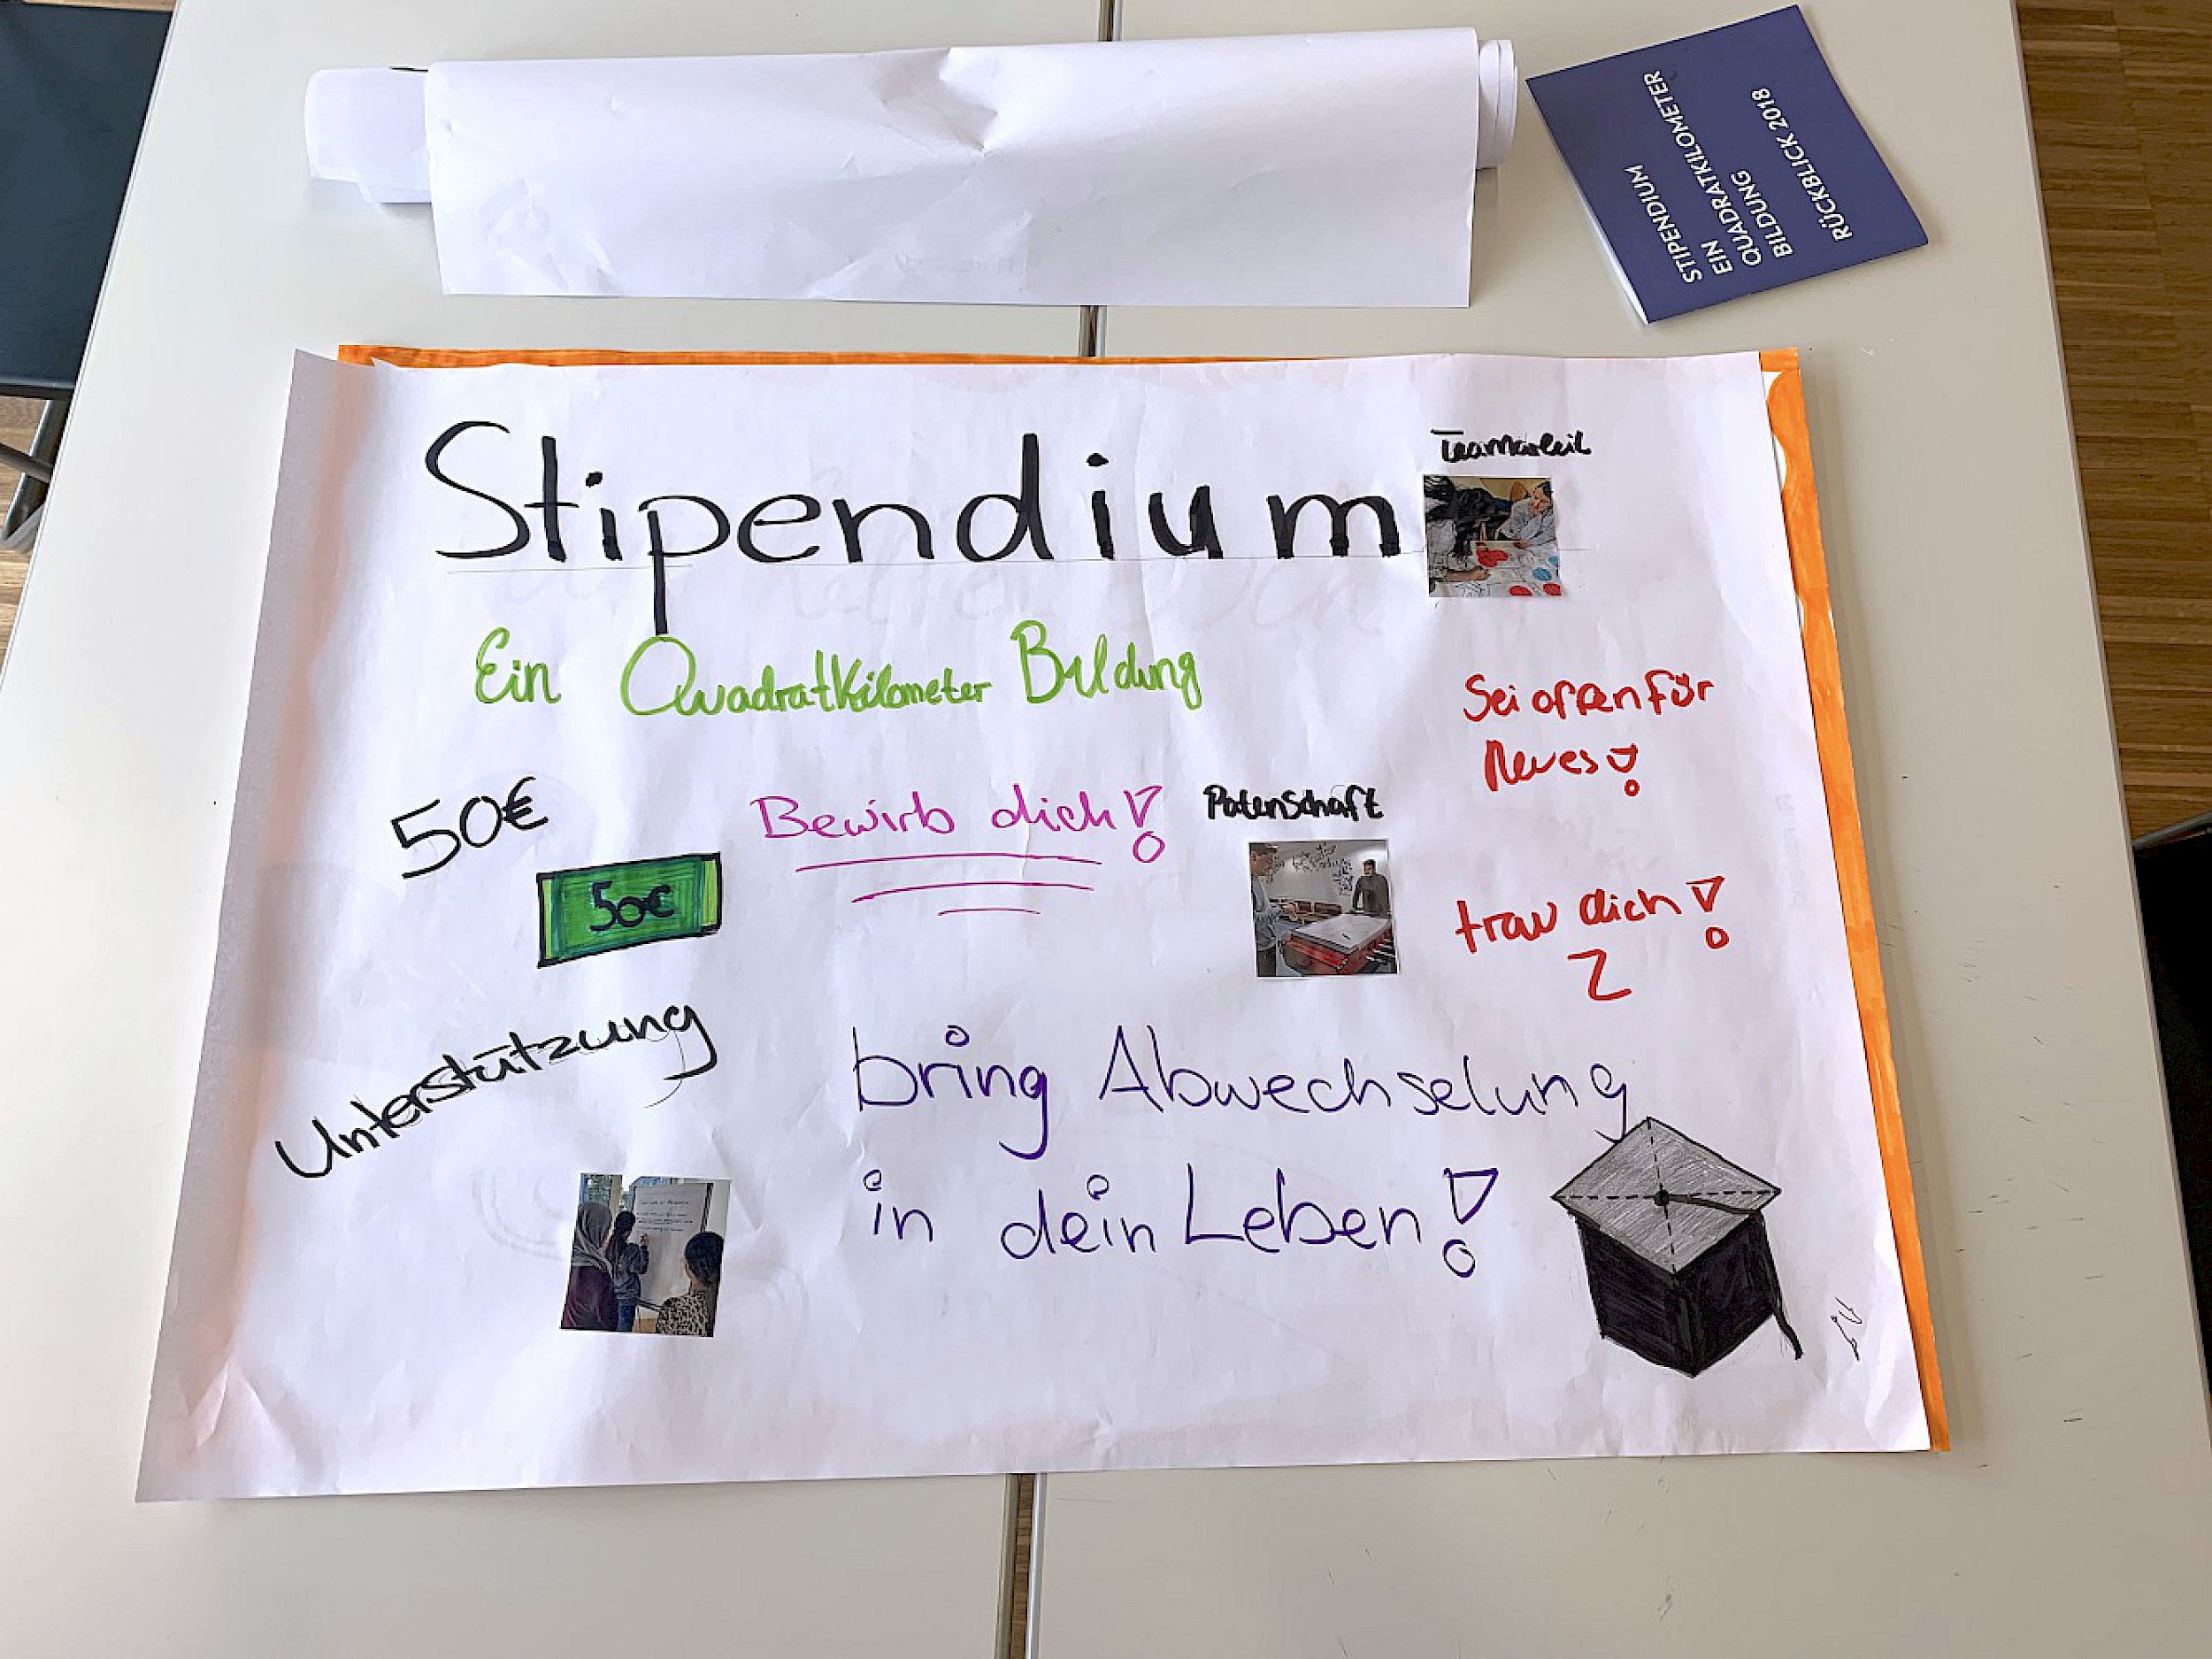 STIPENDIUM
EIN
QUADRATKILOMETER
BILDUNG
RÜCKBLICK 2018
Stipendium
Teamarbeit
Ein Quadratkilometer Bildung
Sei offen für
Neues!
50€
50€
Bewirb dich!
Patenschaft
trau dich!
Unterstützung
bring Abwechselung
in dein Leben!